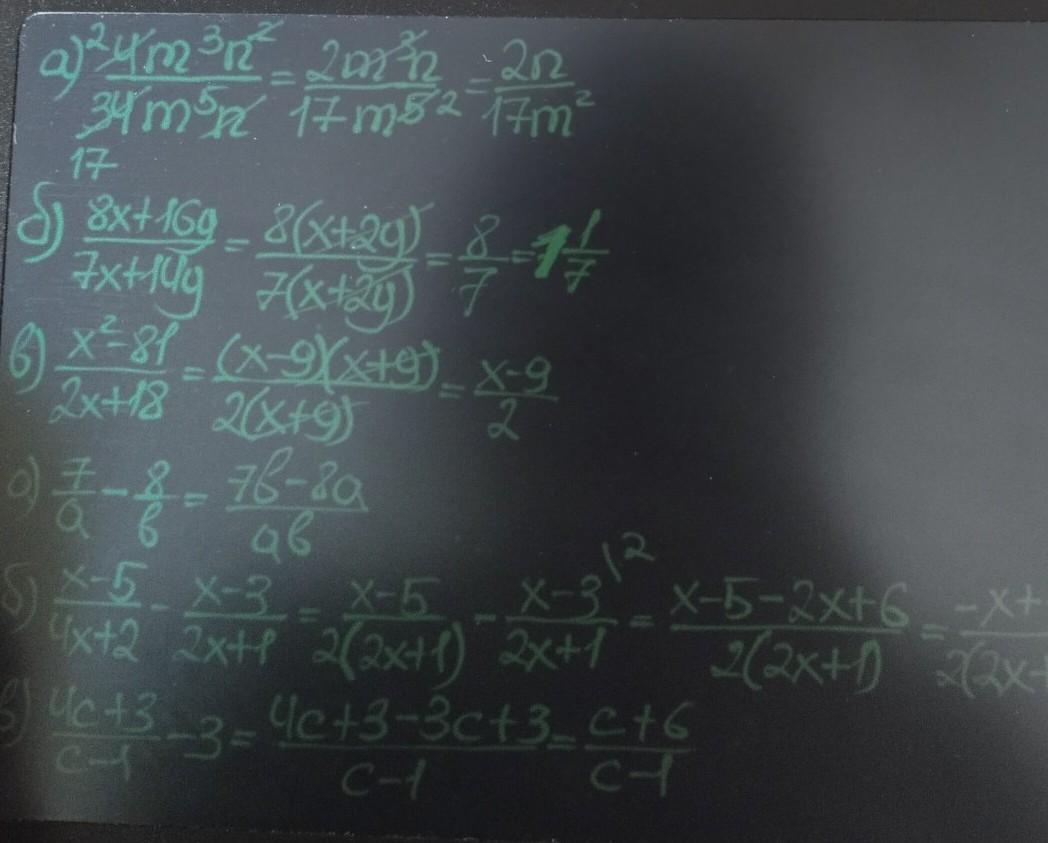 а) 2 4m³n² / 34m⁵n 17 = 2m³n / 17m⁵ 2 = 2n / 17m²
б) 8x+16y / 7x+14y = 8(x+2y) / 7(x+2y) = 8/7 = 1 1/7
в) x²-81 / 2x+18 = (x-9)(x+9) / 2(x+9) = x-9 / 2
а) 7/a - 8/b = 7b-8a / ab
б) x-5 / 4x+2 - x-3 / 2x+1 = x-5 / 2(2x+1) - x-3 \2 / 2x+1 = x-5-2x+6 / 2(2x+1) = -x+ / 2(2x+
в) 4c+3 / c-1 - 3 = 4c+3-3c+3 / c-1 = c+6 / c-1